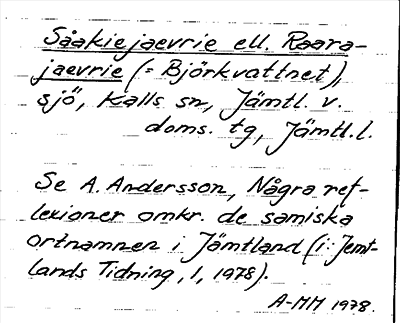 Såakiejaevrie ell. Raara-
jaevrie (= Björkvattnet),
sjö, Kalls sn, Jämtl. v.
doms. tg, Jämtl.l.
Se A. Andersson, Några ref-
lexioner omkr. de samiska
ortnamnen i Jämtland (i: Jemt-
lands Tidning, 1, 1978).
A-MM 1978.